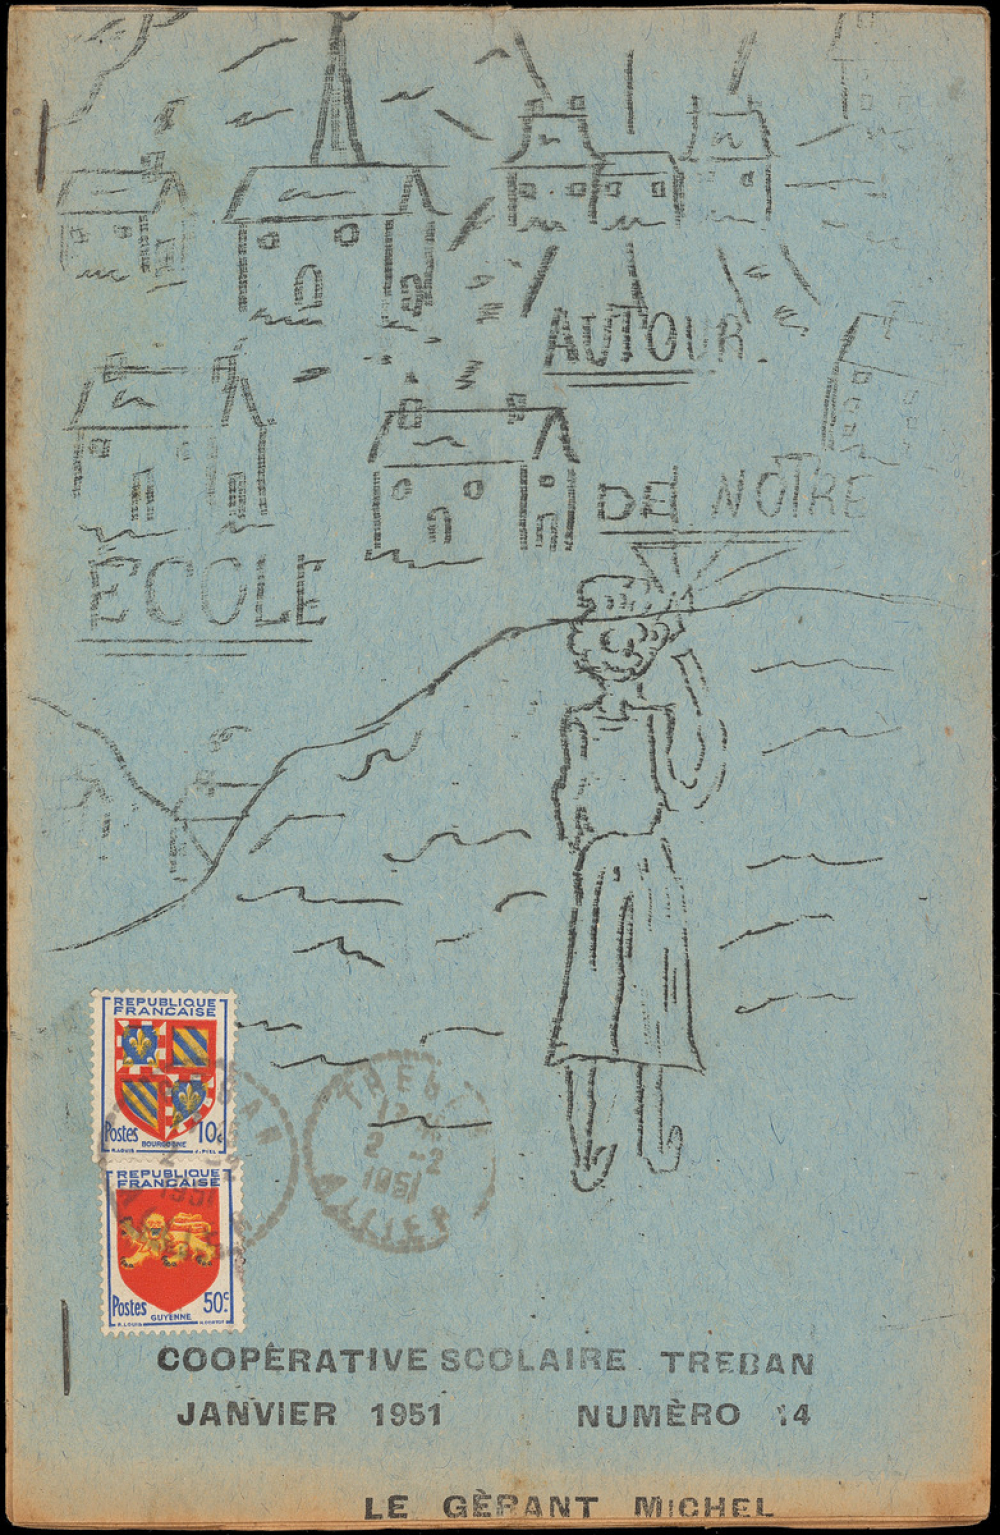 AUTOUR.
DE NOTRE
ÉCOLE
REPUBLIQUE
FRANCAISE
Postes 10c
BOURGOGNE
REPUBLIQUE
FRANCAISE
Postes 50c
GUYENNE
12
2 -2
1951
ALLIER
COOPÈRATIVE SCOLAIRE TREBAN
JANVIER 1951 NUMÈRO 14
LE GÈRANT MICHEL